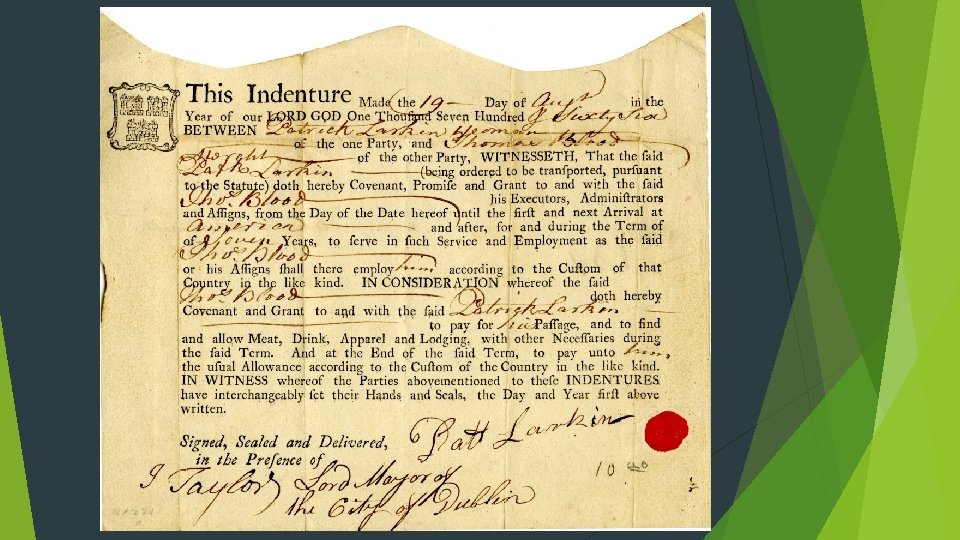 This Indenture Made the 19 Day of Augt in the
Year of our LORD GOD One Thouſand Seven Hundred & Sixty Six
BETWEEN Patrick Larkin Yeoman
of the one Party, and Thomas Blood
of the other Party, WITNESSETH, That the ſaid
Patk Larkin (being ordered to be tranſported, purſuant
to the Statute) doth hereby Covenant, Promiſe and Grant to and with the ſaid
Thos. Blood his Executors, Adminiſtrators
and Aſſigns, from the Day of the Date hereof until the firſt and next Arrival at
America and after, for and during the Term of
of Seven Years, to ſerve in ſuch Service and Employment as the ſaid
Thos. Blood
or his Aſſigns ſhall there employ him according to the Cuſtom of that
Country in the like kind. IN CONSIDERATION whereof the ſaid
Thos. Blood doth hereby
Covenant and Grant to and with the ſaid Patrick Larkin
to pay for his Paſſage, and to find
and allow Meat, Drink, Apparel and Lodging, with other Neceſſaries during
the ſaid Term. And at the End of the ſaid Term, to pay unto him
the uſual Allowance according to the Cuſtom of the Country in the like kind.
IN WITNESS whereof the Parties abovementioned to theſe INDENTURES
have interchangeably ſet their Hands and Seals, the Day and Year firſt above
written.
Signed, Sealed and Delivered,
in the Preſence of
Patt Larkin
J Taylor Lord Mayor of
the City of Dublin